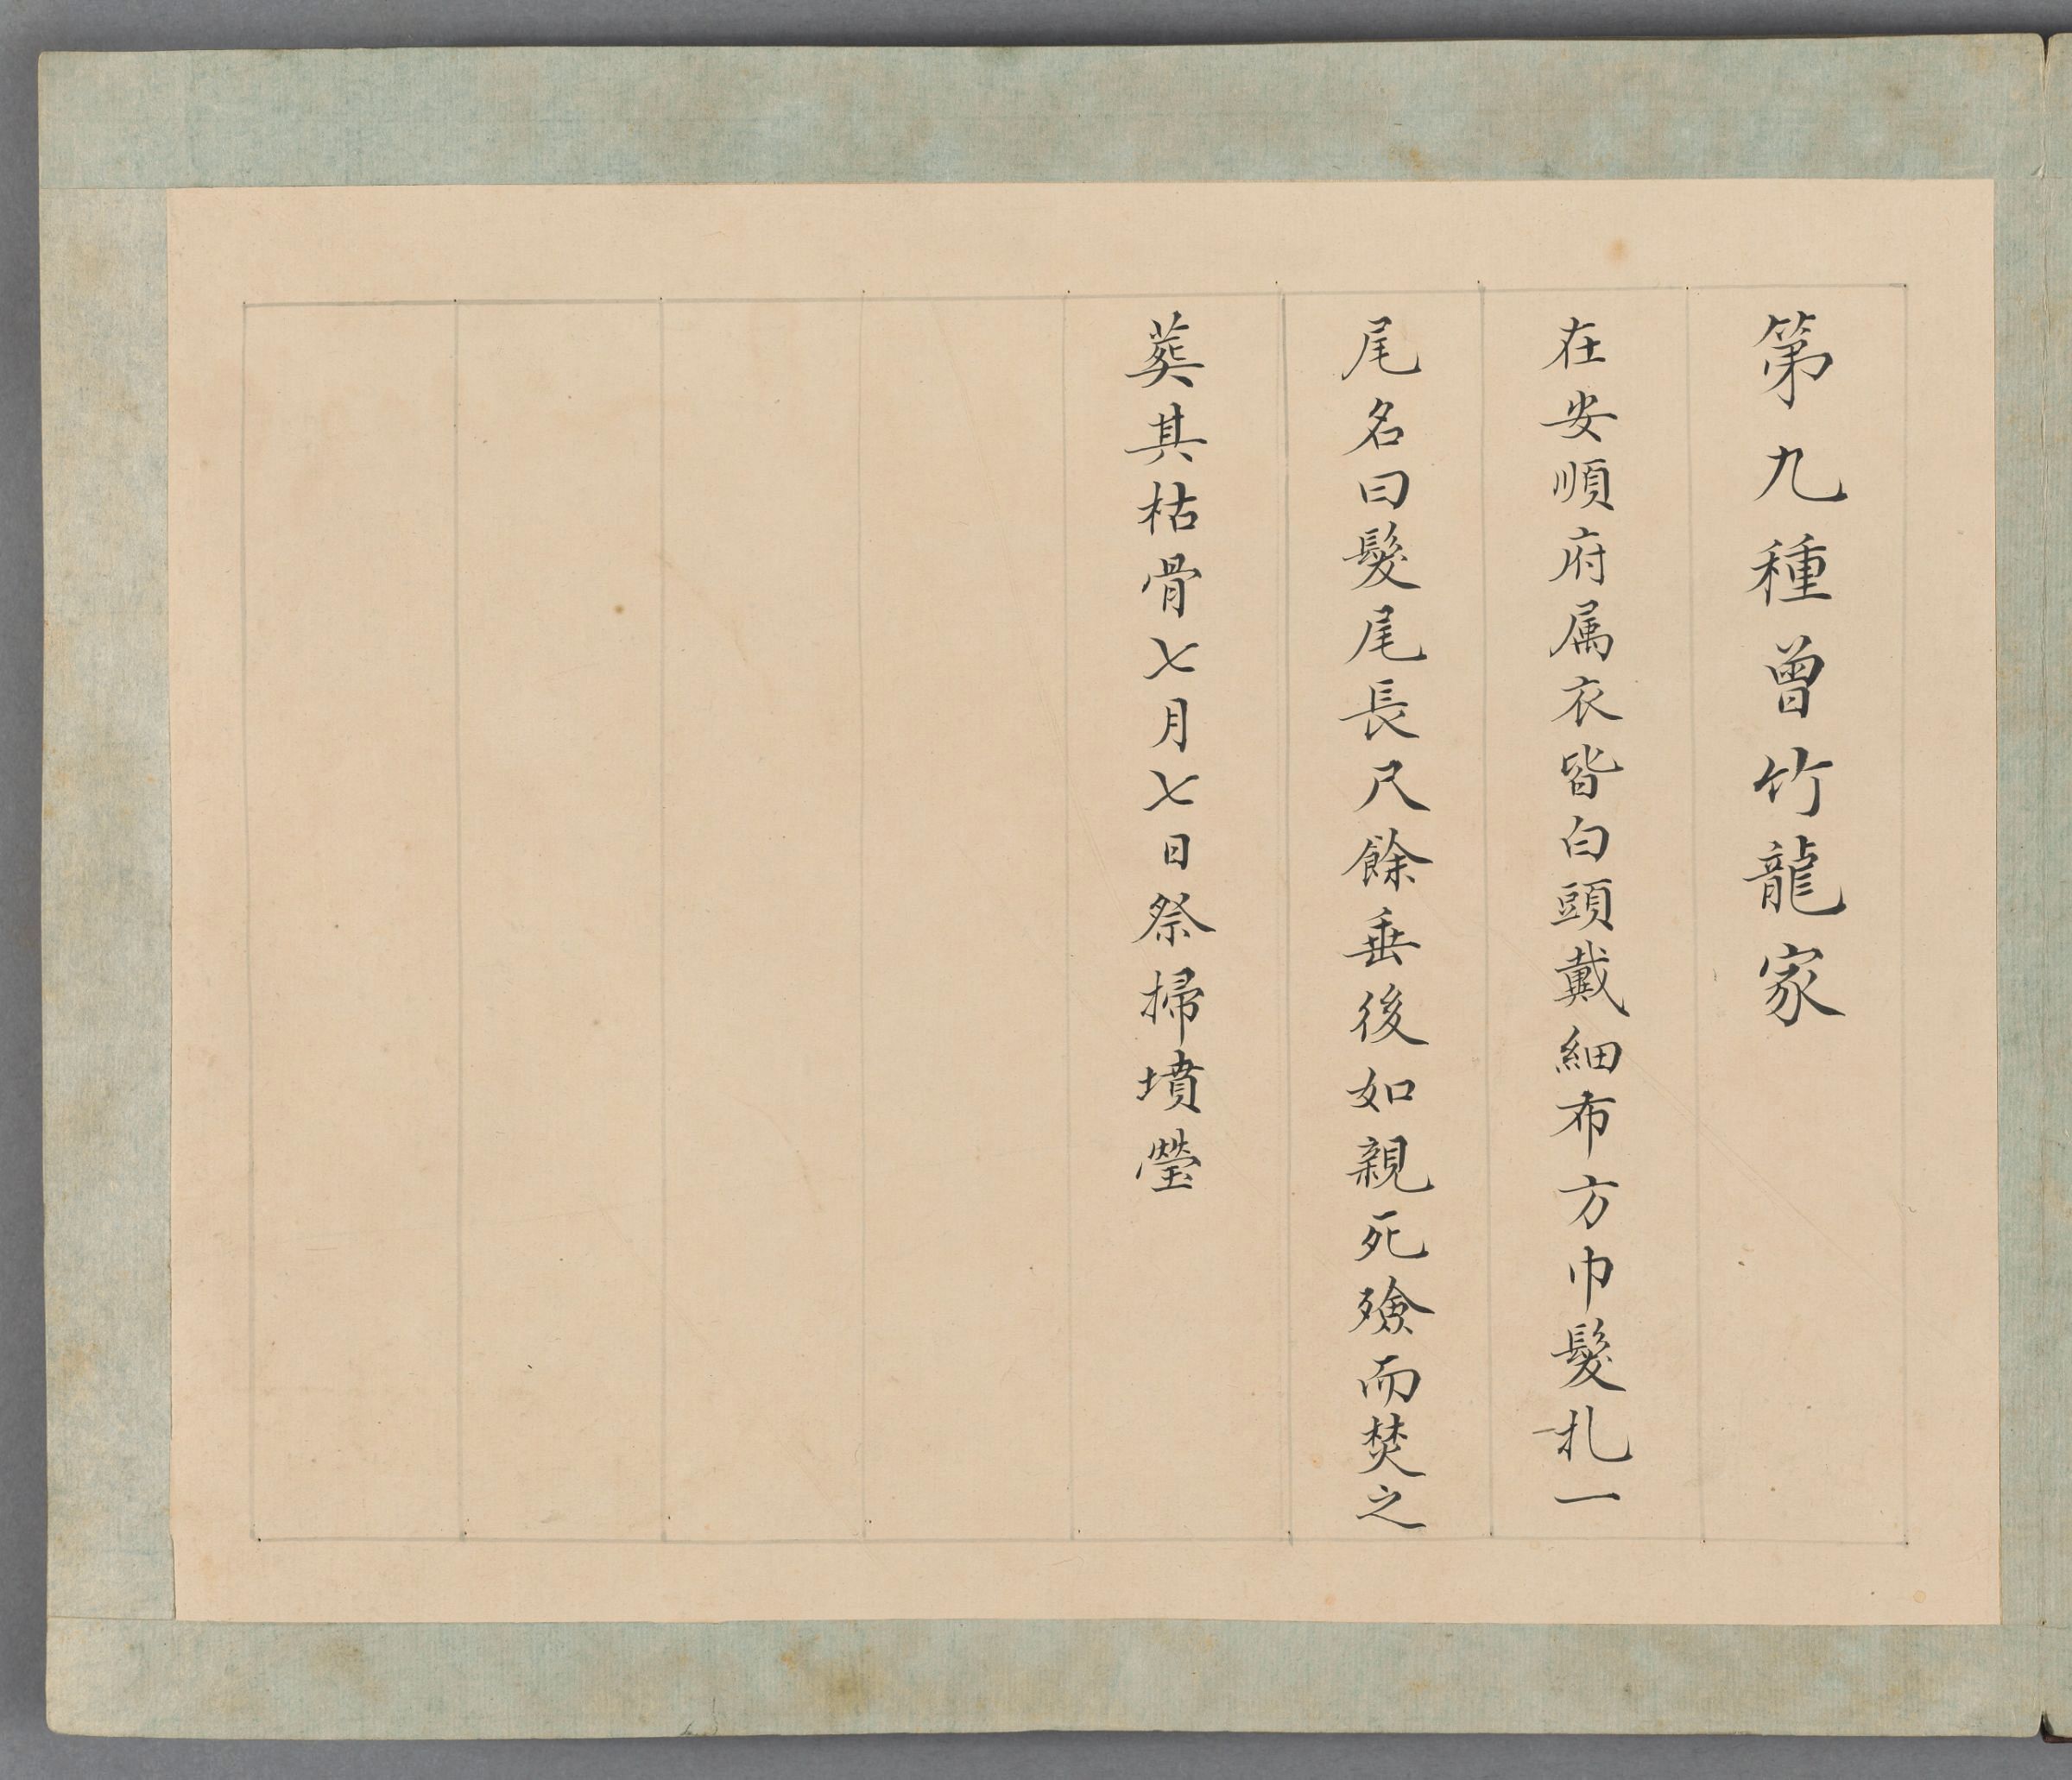 第九種曾竹龍家
在安順府属衣皆白頭戴細布方巾髮扎一
尾名曰髮尾長尺餘垂後如親死殮而焚之
葵其枯骨七月七日祭掃墳瑩